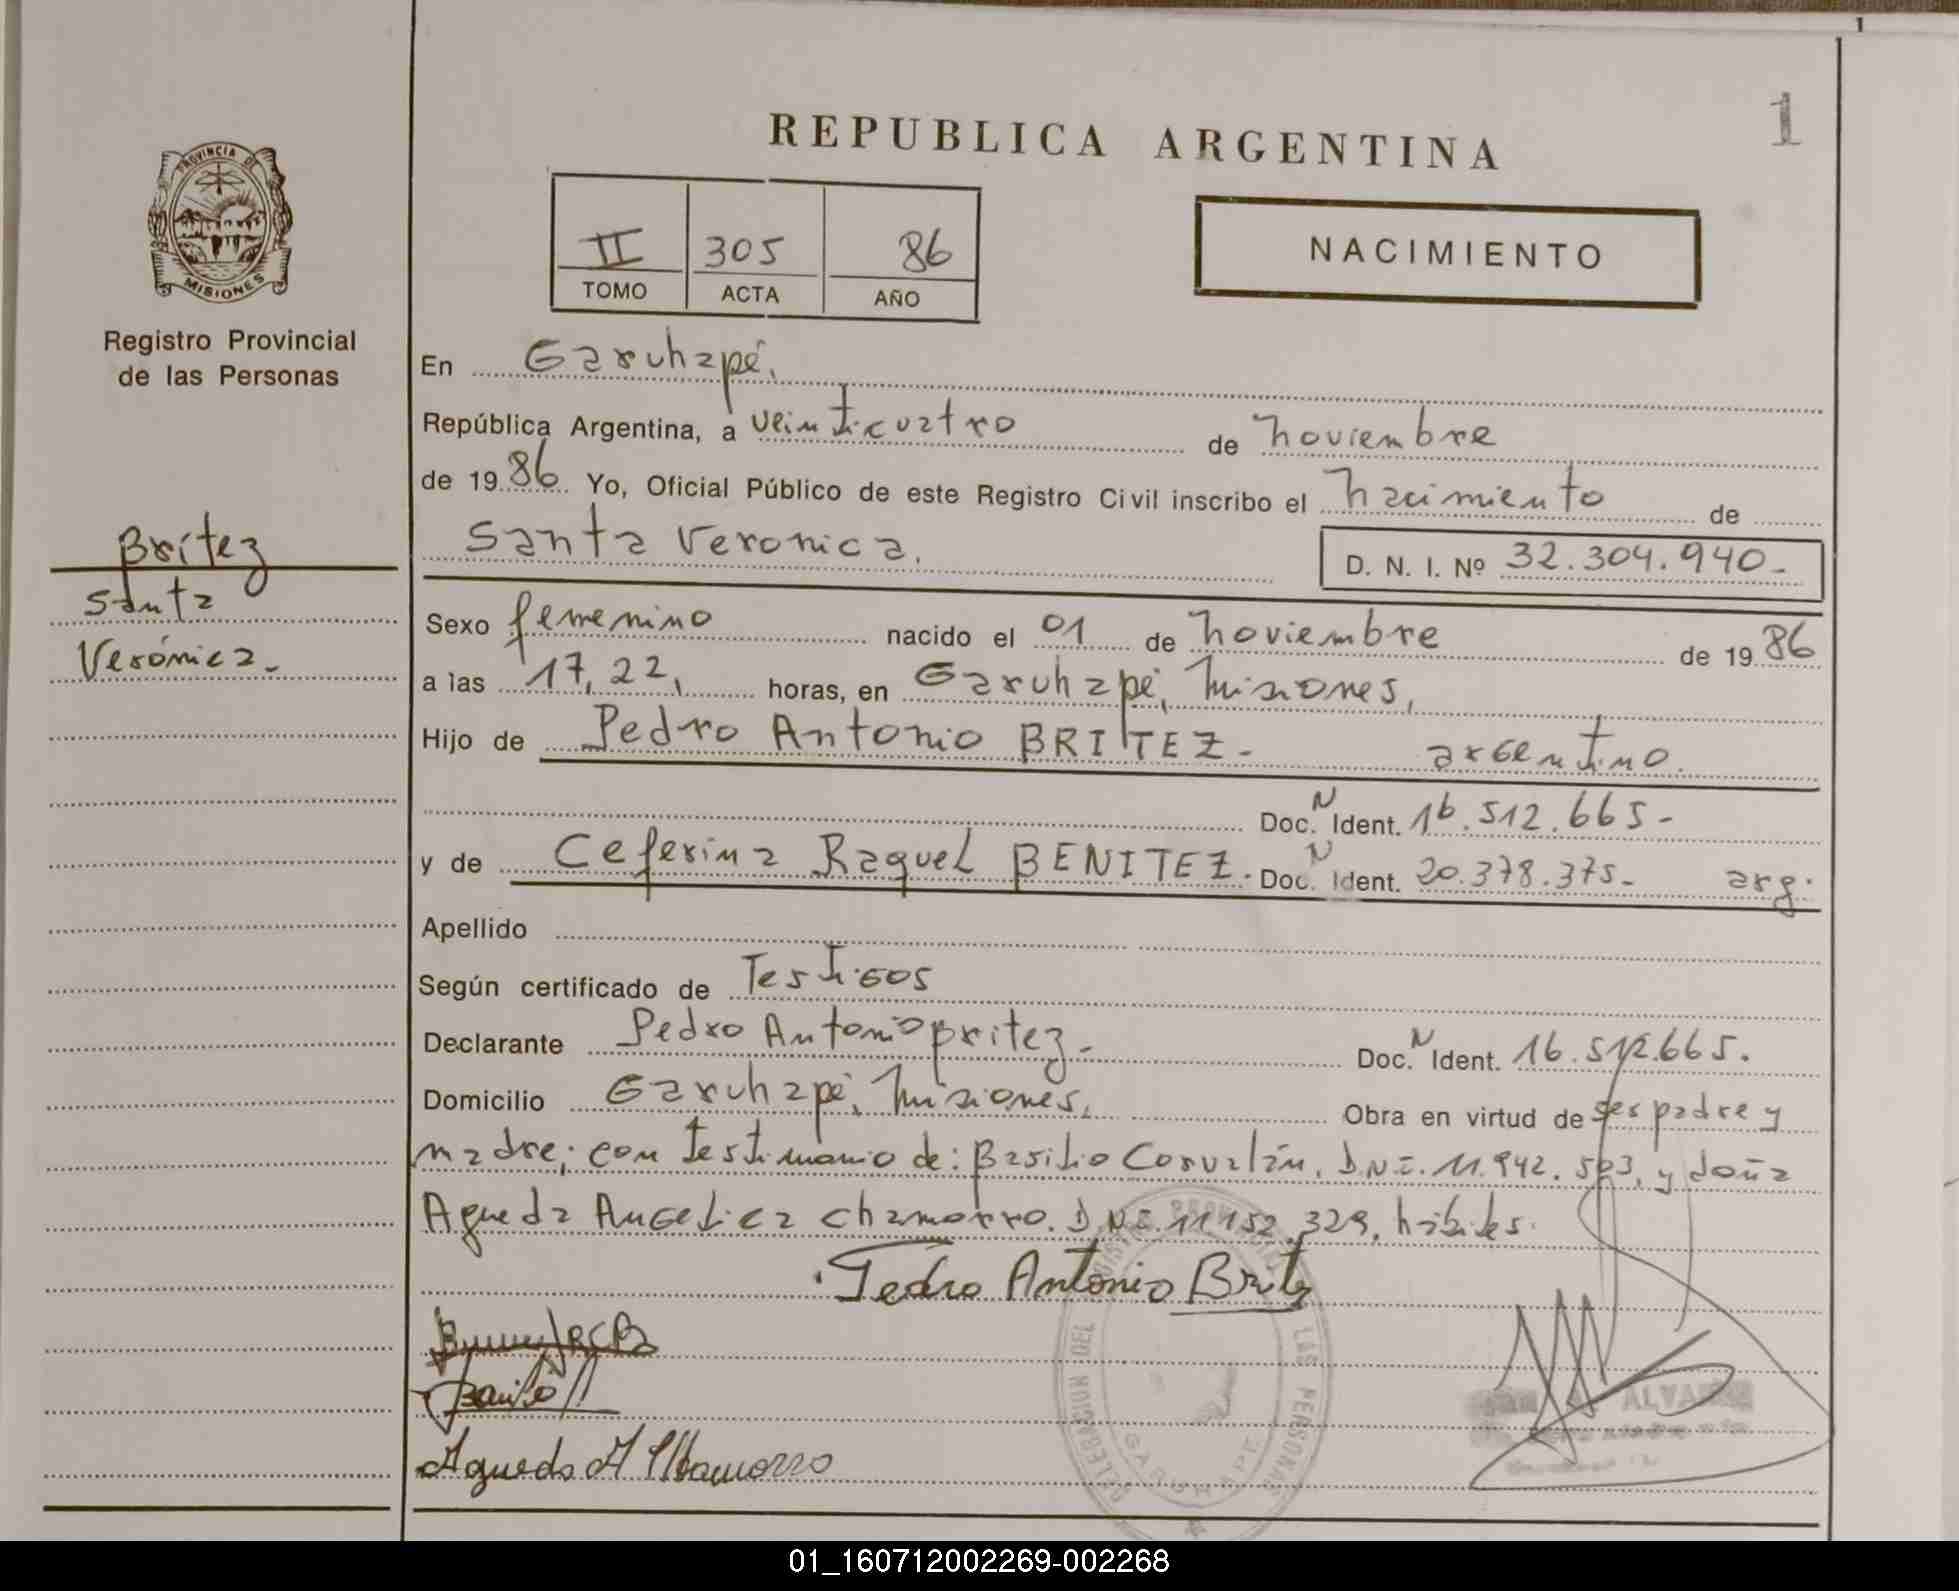 1
REPUBLICA ARGENTINA
1
PROVINCIA DE
MISIONES
Registro Provincial
de las Personas
II 305 86
TOMO ACTA AÑO
NACIMIENTO
En Garuhapé,
República Argentina, a veinticuatro de noviembre
de 1986 Yo, Oficial Público de este Registro Civil inscribo el nacimiento de
Santa Veronica,
D. N. I. Nº 32.304.940-
Britez
Santa
Verónica-
Sexo femenino nacido el 01 de noviembre de 1986
a las 17,22, horas, en Garuhapé, Misiones,
Hijo de Pedro Antonio BRITEZ- argentino.
Doc. N Ident. 16.512.665-
y de Ceferina Raquel BENITEZ. Doc. N Ident. 20.378.375- arg.
Apellido
Según certificado de Testigos
Declarante Pedro Antonio Britez- Doc. N Ident. 16.512.665.
Domicilio Garuhapé, Misiones, Obra en virtud de ser padre y
madre; con testimonio de: Basilio Corvalán, D.N.I. 11.942.503, y doña
Agueda Angelica Chamorro. D.N.I. 11152.329, hábiles.
Pedro Antonio Britz
Agueda A Chamorro
DELEGACION DEL REGISTRO PROVINCIAL DE LAS PERSONAS
GARUHAPE
ALVA
01_160712002269-002268